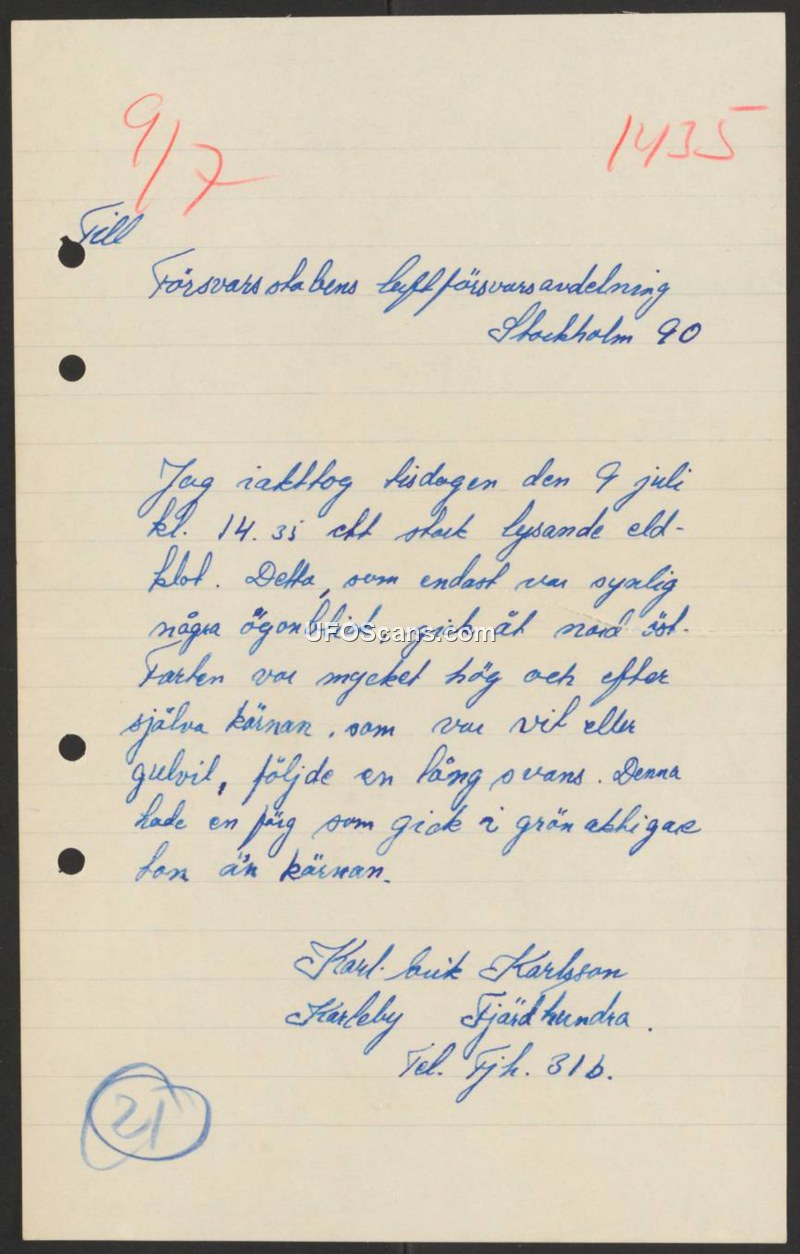 9/7 1435
Till
Försvarsstabens luftförsvarsavdelning
Stockholm 90
Jag iakttog tisdagen den 9 juli
kl. 14.35 ett stort lysande eld-
klot. Detta, som endast var synlig
några ögonblick, gick åt nord öst.
Farten var mycket hög och efter
själva kärnan, som var vit eller
gulvit, följde en lång svans. Denna
hade en färg som gick i grönaktigare
ton än kärnan.
Karl-Erik Karlsson
Karleby Fjärdhundra.
Tel. Fjh. 31b.
21
UFOScans.com